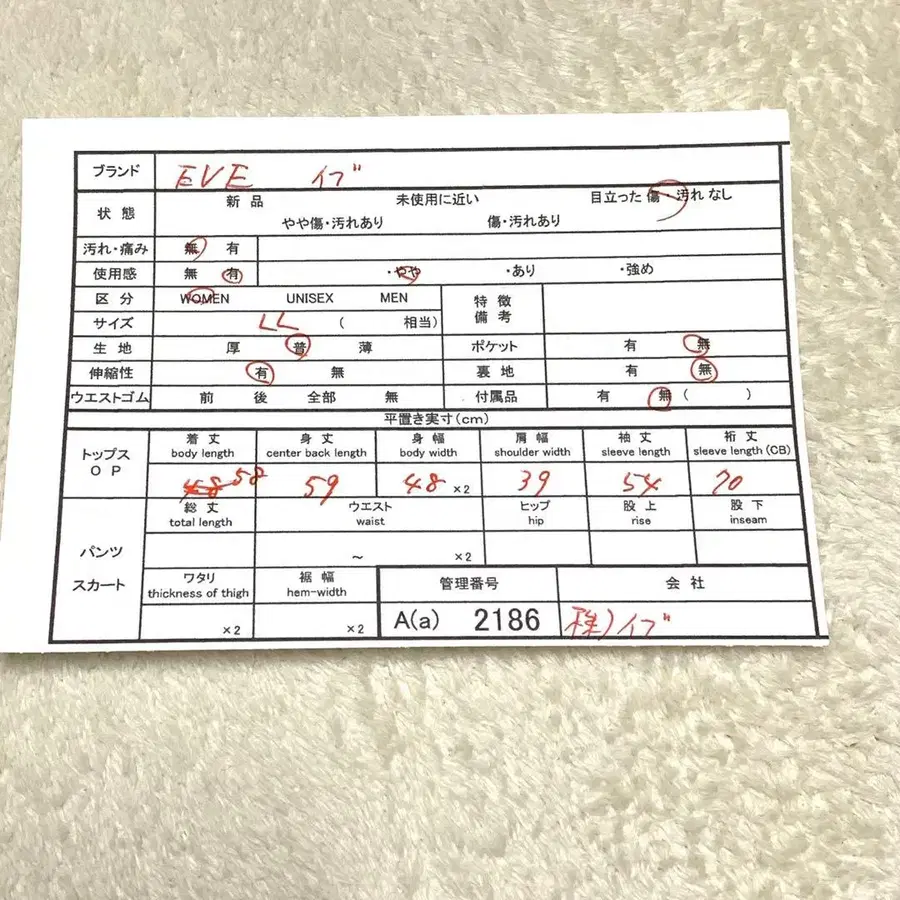 ブランド EVE イブ
状態 新品 未使用に近い 目立った傷・汚れなし
やや傷・汚れあり 傷・汚れあり
汚れ・痛み 無 有
使用感 無 有 ・やや ・あり ・強め
区分 WOMEN UNISEX MEN 特徴
備考
サイズ LL ( 相当)
生地 厚 普 薄 ポケット 有 無
伸縮性 有 無 裏地 有 無
ウエストゴム 前 後 全部 無 付属品 有 無 ( )
平置き実寸(cm)
トップス
OP
着丈 身丈 身幅 肩幅 袖丈 裄丈
body length center back length body width shoulder width sleeve length sleeve length (CB)
48 58 59 48 ×2 39 54 70
パンツ
スカート
総丈 ウエスト ヒップ 股上 股下
total length waist hip rise inseam
～ ×2
ワタリ 裾幅 管理番号 会社
thickness of thigh hem-width
×2 ×2 A(a) 2186 株)イブ